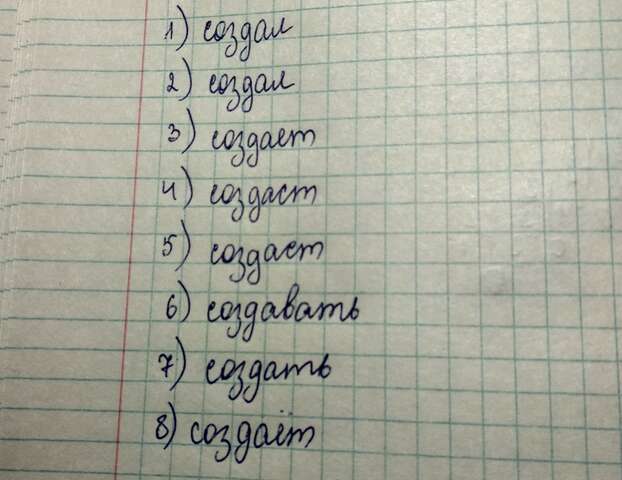 1) создал
2) создал
3) создает
4) создаст
5) создаст
6) создавать
7) создать
8) создаёт